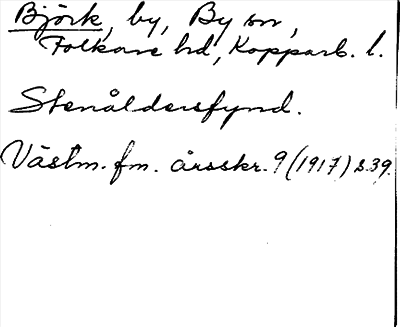 Björk, by, By sn,
Folkare hd, Kopparb. l.
Stenåldersfynd.
Västm. fm. årsskr. 9 (1917) s.39.